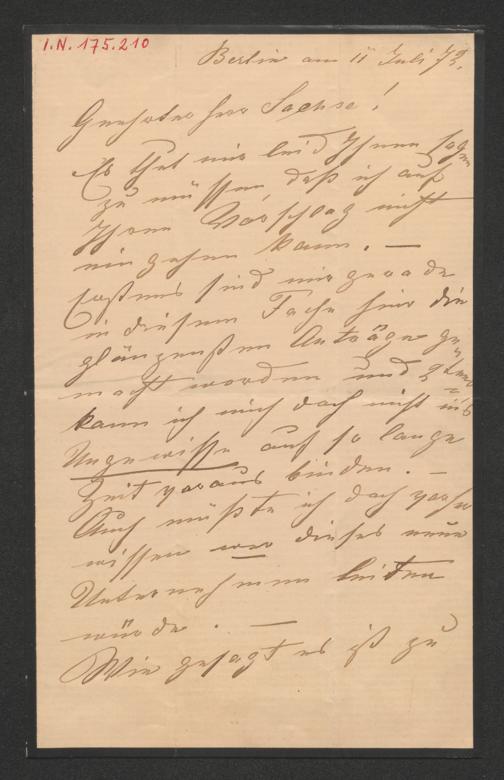 I.N. 175.210
Berlin am 11 Juli 73.
Geehrter Herr Sachse!
Es thut mir leid Ihnen sagen
zu müssen, daß ich auf
Ihren Vorschlag nicht
eingehen kann. —
Erstens sind mir gerade
in diesem Fache hier die
glänzendsten Anträge ge-
macht worden und 2tens
kann ich mich doch nicht ins
Ungewisse auf so lange
Zeit voraus binden. —
Auch müßte ich doch vorher
wissen wer dieses neue
Unternehmen leiten
würde. —
Wie gesagt es ist zu